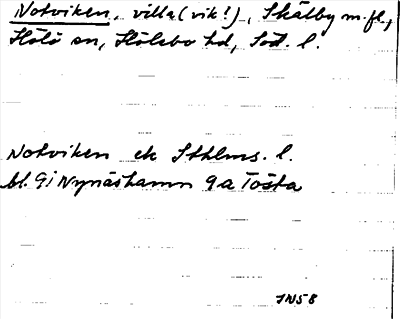 Notviken, villa (vik!), Skälby m.fl.,
Hölö sn, Hölebo hd, Söd. l.
Notviken ek Sthlms. l.
bl. 9i Nynäshamn 9a Tösta
INS8